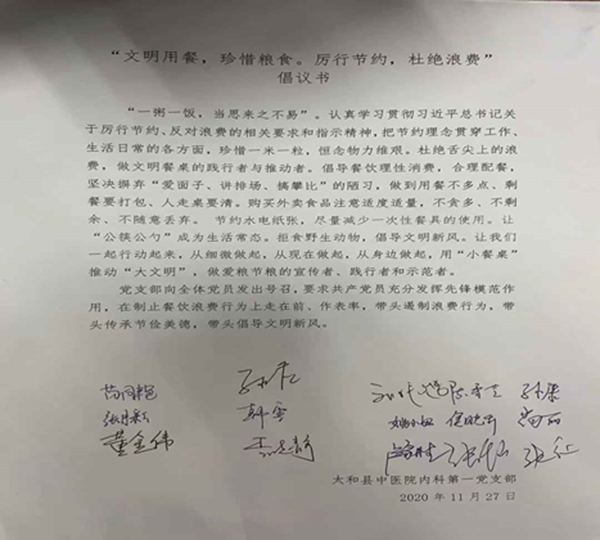 “文明用餐，珍惜粮食。厉行节约，杜绝浪费”
倡议书
“一粥一饭，当思来之不易”。认真学习贯彻习近平总书记关
于厉行节约、反对浪费的相关要求和指示精神，把节约理念贯穿工作、
生活日常的各方面，珍惜一米一粒，恒念物力维艰。杜绝舌尖上的浪
费，做文明餐桌的践行者与推动者。倡导餐饮理性消费，合理配餐，
坚决摒弃“爱面子、讲排场、搞攀比”的陋习，做到用餐不多点、剩
餐要打包、人走桌要清。购买外卖食品注意适度适量，不贪多、不剩
余、不随意丢弃。 节约水电纸张，尽量减少一次性餐具的使用。让
“公筷公勺”成为生活常态。拒食野生动物，倡导文明新风。让我们
一起行动起来，从细微做起，从现在做起，从身边做起，用“小餐桌”
推动“大文明”，做爱粮节粮的宣传者、践行者和示范者。
党支部向全体党员发出号召，要求共产党员充分发挥先锋模范
作用，在制止餐饮浪费行为上走在前、作表率，带头遏制浪费行为，带
头传承节俭美德，带头倡导文明新风。
韩雪
董金伟
太和县中医院内科第一党支部
2020 年 11 月 27 日